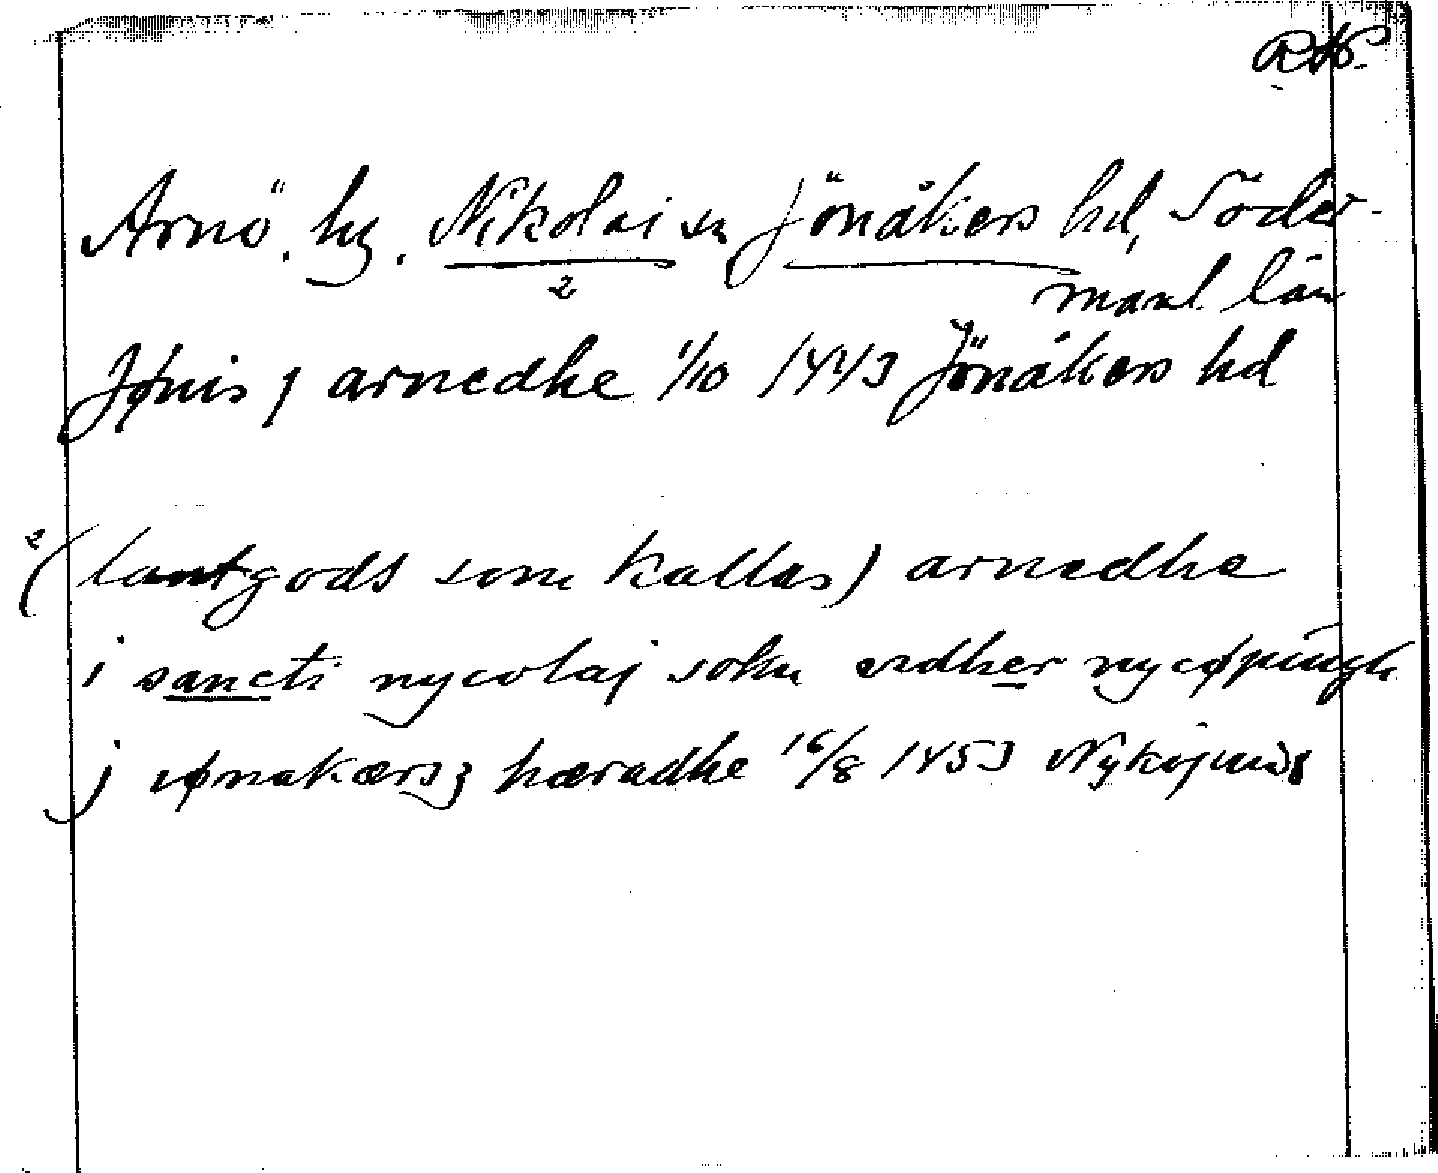 Arnö. hg. Nikolai sn Jönåkers hd, Söder-
manl. län
Jønis j arnedhe 1/10 1443 Jönåkers hd
2 (lantgods som kallas) arnedhe
i sancti nycolaj sokn vidher nycøpungh
j iønakærs hæradhe 16/8 1453 Nyköping